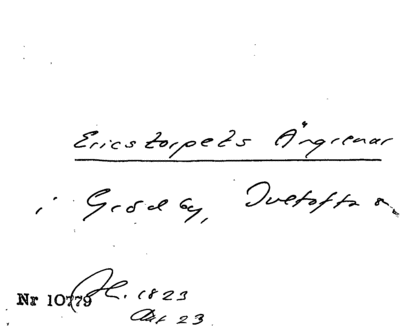 Ericstorpets Ängrenar
i Grödby, Tvetofta s.
Nr 10779 Ac. 1823
Akt 23